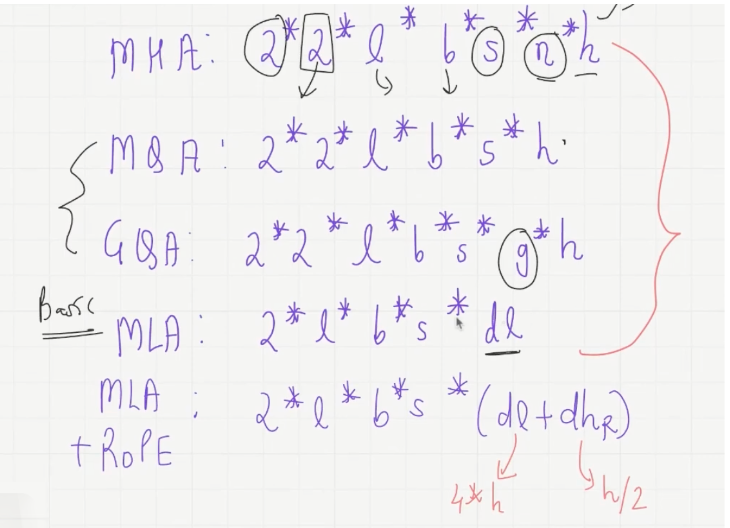 MHA: 2*2*l*b*s*n*h
MQA: 2*2*l*b*s*h
GQA: 2*2*l*b*s*g*h
Basic MLA: 2*l*b*s*dl
MLA + RoPE : 2*l*b*s*(dl+dhR)
4*h h/2